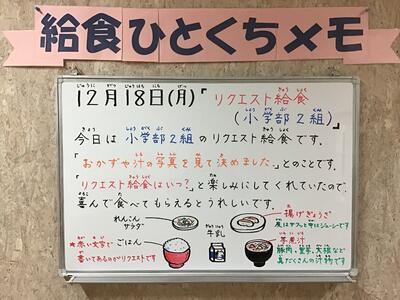 給食ひとくちメモ
12月18日(月)「リクエスト給食
(小学部2組)」
今日は小学部2組のリクエスト給食です。
「おかずや汁の写真を見て決めました。」とのことです。
「リクエスト給食はいつ?」と楽しみにしてくれていたので、
喜んで食べてもらえるとうれしいです。
れんこん
サラダ
牛乳
揚げぎょうざ
皮はサクッと中はジューシーです
★赤い文字で
書いてあるのがリクエストです
ごはん
芋煮汁
豚肉、里芋、大根など
具だくさんの汁物です